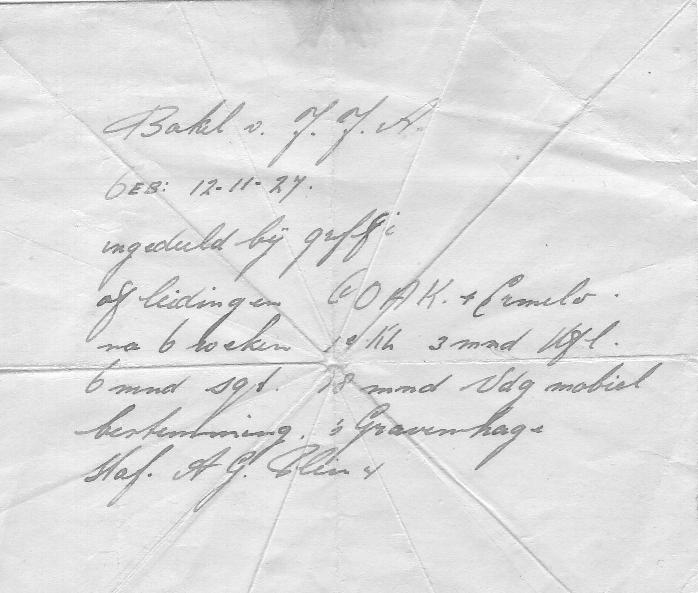 Bakel v. J. J. A.
GEB: 12-11-27.
ingedeeld bij
afleidingen COAK. + Ermelo.
na 6 weken 1e Kl. 3 mnd Kpl.
6 mnd sgt. 18 mnd Vdg mobiel
bestemming. 's Gravenhage
Staf. A G. Plein